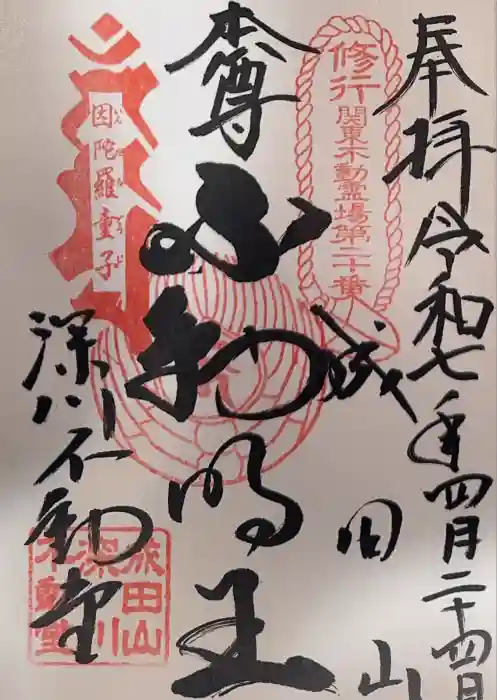 奉拝 令和七年四月二十四日
修行
関東不動霊場第二十番
成田山
本尊 不動明王
因陀羅童子
いんだらどうじ
深川不動堂
成田山
深川
不動堂